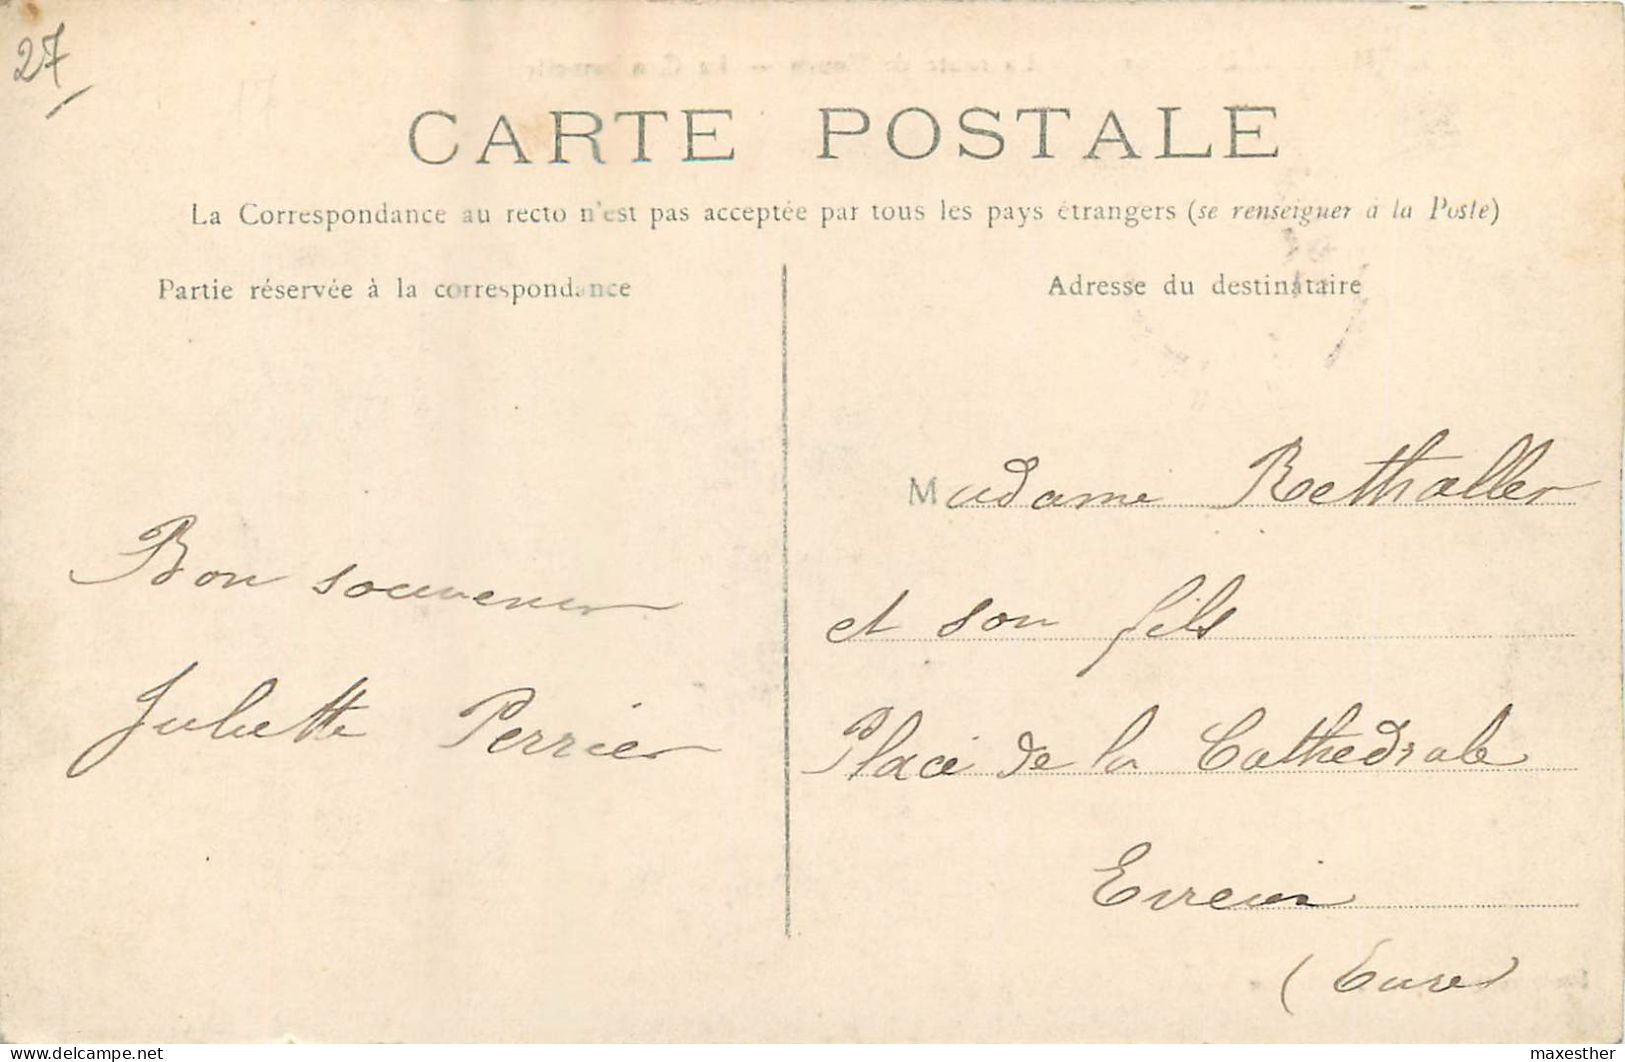 27
CARTE POSTALE
La Correspondance au recto n'est pas acceptée par tous les pays étrangers (se renseigner à la Poste)
Partie réservée à la correspondance
Adresse du destinataire
Bon souvenir
Juliette Perrier
Madame Rethaller
et son fils
Place de la Cathedrale
Evreux
(Eure)
maxesther